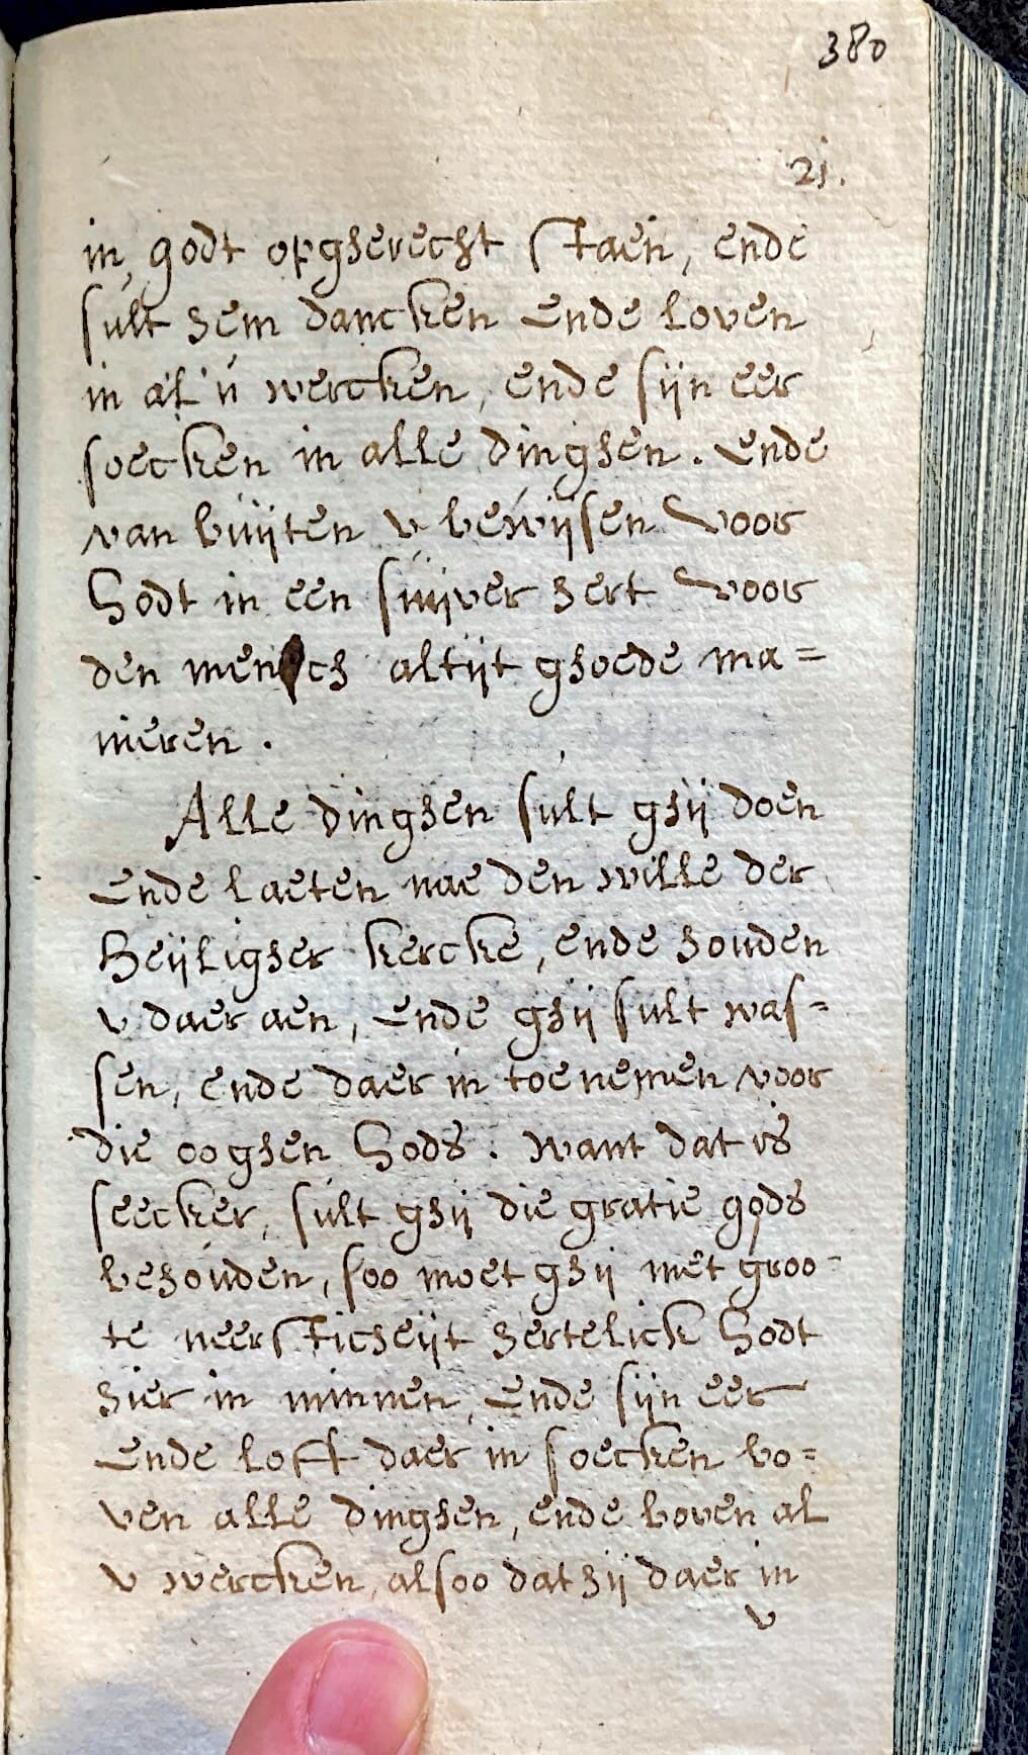 380
21.
in godt opgherecht staen, ende
sult hem dancken ende loven
in al u wercken, ende sijn eer
soecken in alle dinghen. Ende
van buijten v bewijsen voor
Godt in een suijver hert voor
den mensch altijt ghoede ma=
nieren.
Alle dinghen sult ghij doen
Ende laeten nae den wille der
Heijligher kercke, ende houden
v daer aen, ende ghij sult was=
sen, ende daer in toe nemen voor
die ooghen Gods. want dat is
seecker, sult ghij die gratie gods
behouden, soo moet ghij met groo-
te neersticheijt hertelick Godt
hier in minnen, Ende sijn eer
Ende loff daer in soecken bo=
ven alle dinghen, ende boven al
v wercken, alsoo dat hij daer in
v